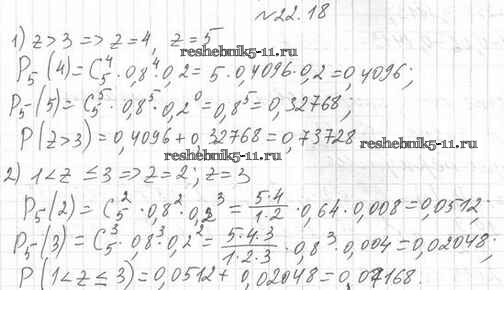 №22.18
1) z>3 => z=4, z=5
reshebnik5-11.ru
P₅(4)=C₅⁴·0,8⁴·0,2=5·0,4096·0,2=0,4096;
P₅(5)=C₅⁵·0,8⁵·0,2⁰=0,8⁵=0,32768;
P(z>3)=0,4096+0,32768=0,73728
reshebnik5-11.ru
reshebnik5-11.ru
2) 1<z≤3 => z=2; z=3
P₅(2)=C₅²·0,8²·0,2³=5·4/1·2·0,64·0,008=0,0512;
P₅(3)=C₅³·0,8³·0,2²=5·4·3/1·2·3·0,8³·0,004=0,02048;
P(1<z≤3)=0,0512+0,02048=0,07168.